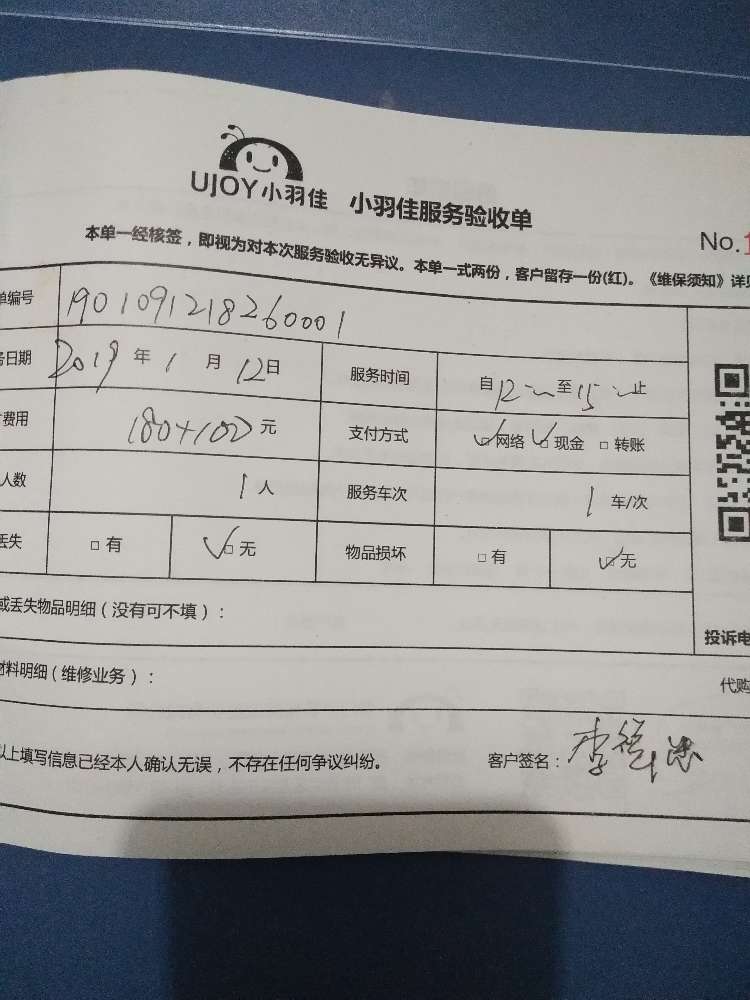 UJOY小羽佳 小羽佳服务验收单
No.1
本单一经核签，即视为对本次服务验收无异议。本单一式两份，客户留存一份(红)。《维保须知》详见
单编号 1901091218260001
务日期 2019年1月12日 服务时间 自12~至15~止
费用 180+100元 支付方式 ☑网络 ☑现金 □转账
人数 1人 服务车次 1车/次
丢失 □有 ☑无 物品损坏 □有 ☑无
或丢失物品明细（没有可不填）：
投诉电
材料明细（维修业务）：
代购
以上填写信息已经本人确认无误，不存在任何争议纠纷。 客户签名：